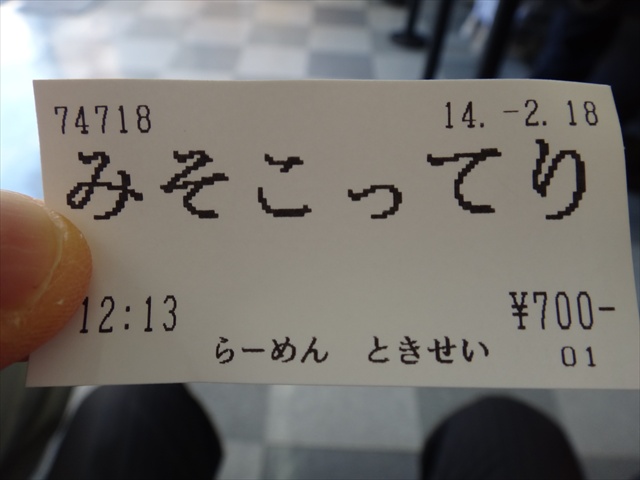 74718 14.-2.18
みそこってり
12:13 ¥700-
らーめん ときせい 01